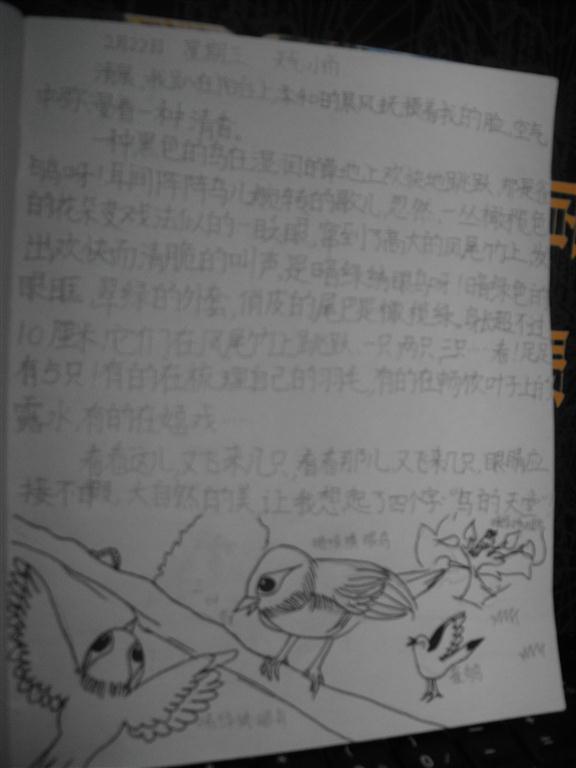 2月22日 星期三 天气:小雨
清晨,我趴在阳台上,柔和的晨风抚摸着我的脸,空气
中弥漫着一种清香。
一种黑色的鸟在湿润的草地上欢快地跳跃,那是
鸲呀!耳间阵阵鸟儿婉转的歌儿,忽然,一丛橄榄色
的花朵变戏法似的一眨眼,窜到了高大的凤尾竹上,发
出欢快而清脆的叫声,是暗绿绣眼鸟呀!暗绿色的
眼眶,翠绿的外套,俏皮的尾巴是橄榄绿。身长超不过
10厘米,它们在凤尾竹上跳跃,一只,两只,三只……看!足足
有5只!有的在梳理自己的羽毛,有的在畅饮叶子上的
露水,有的在嬉戏……
看看这儿,又飞来几只,看看那儿,又飞来几只,眼睛应
接不暇,大自然的美,让我想起了四个字:“鸟的天堂”
暗绿绣眼鸟
暗绿绣眼鸟